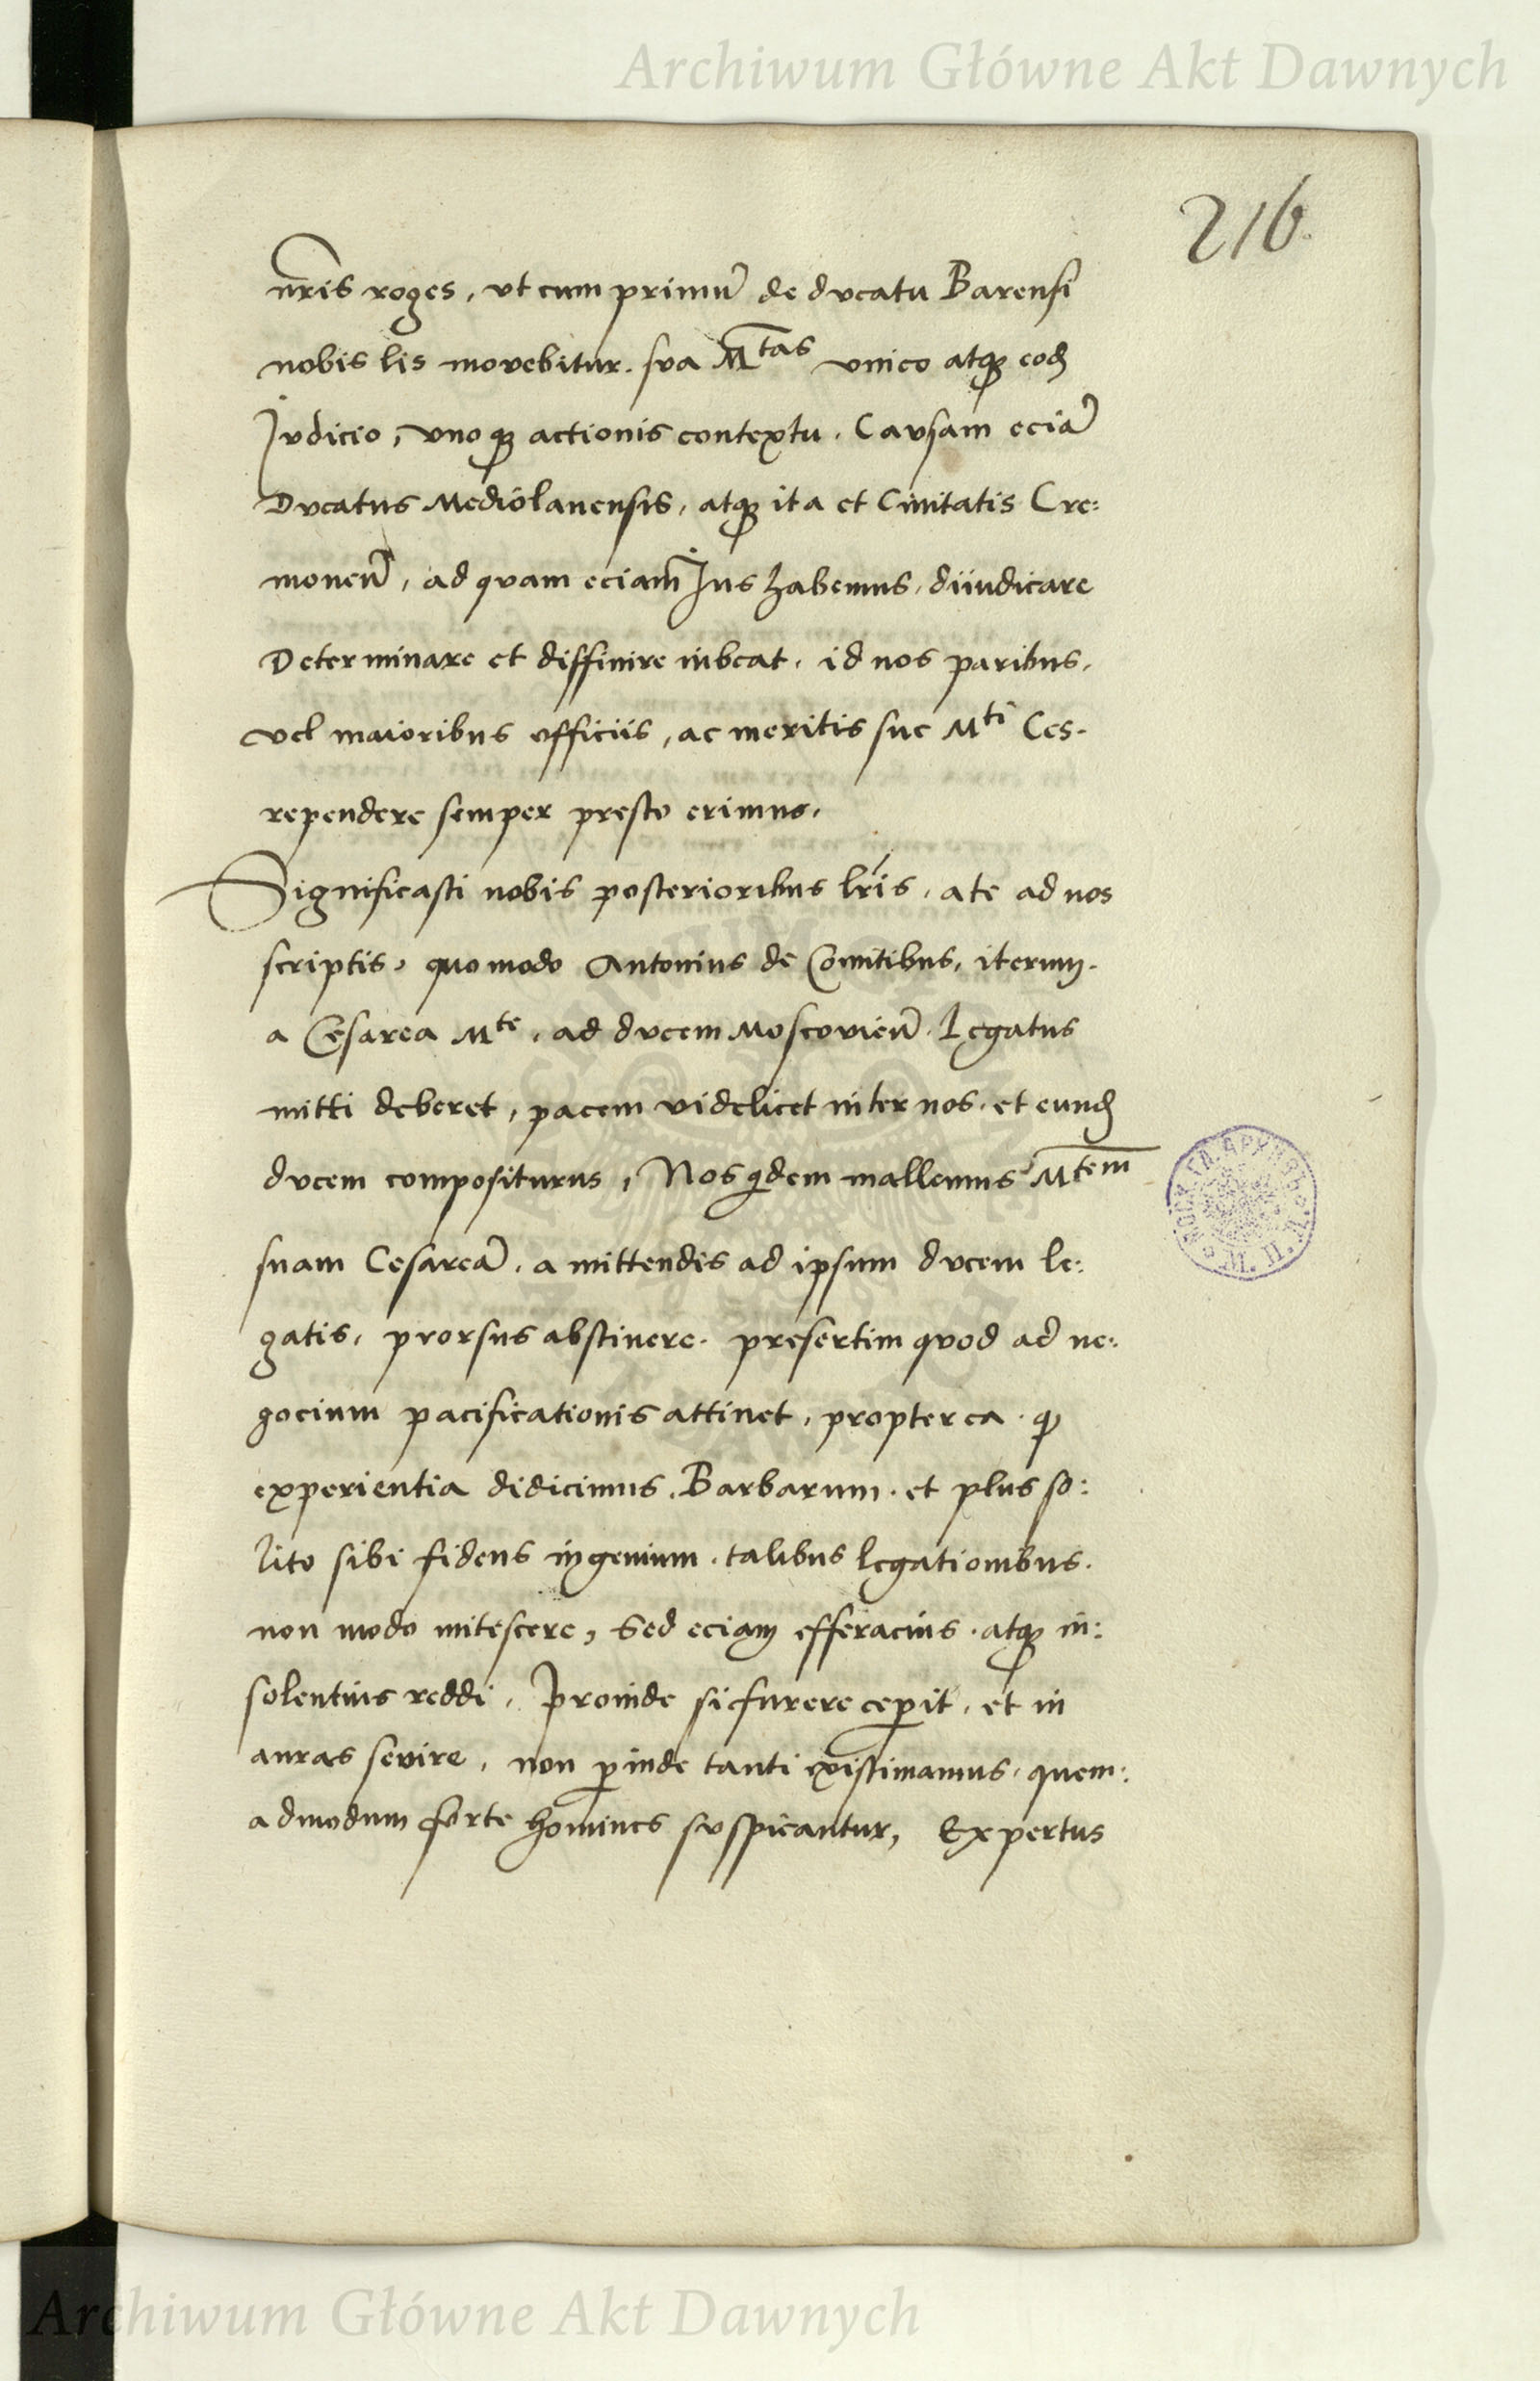 Archiwum Główne Akt Dawnych
216
nr̃is roges, vt cum primũ de dvcatu Barensi
nobis lis movebitur. sva M^tas vnico atq; eod̃
Jvdicio, vnoq; actionis contextu. Cavsam eciã
Dvcatus Mediolanensis, atq; ita et Civitatis Cre:
moneñ, ad qvam eciam Jus habemus, diiudicare
Determinare et diffinire iubeat. id nos paribus,
vel maioribus officiis, ac meritis sue M^ti Ces.
rependere semper presto erimus.
Significasti nobis posterioribus lr̃is, a te ad nos
scriptis, quomodo Antonius de Comitibus, iterum.
a Cesarea M^te, ad dvcem Moscovieñ. Legatus
mitti deberet, pacem videlicet inter nos. et eund̃
dvcem compositurus, Nos qdem mallemus M^tem
suam Cesareã. a mittendis ad ipsum dvcem le:
gatis, prorsus abstinere. presertim qvod ad ne:
gocium pacificationis attinet, propterea. q
experientia didicimus. Barbarum. et plus so:
lito sibi fidens ingenium. talibus legationibus.
non modo mitescere, Sed eciam efferacius. atq; in:
solentius reddi, Proinde sic furere cepit, et in
auras sevire, non pinde tanti existimamus, quem:
admodum forte homines svspicantur, Expertus
Archiwum Główne Akt Dawnych